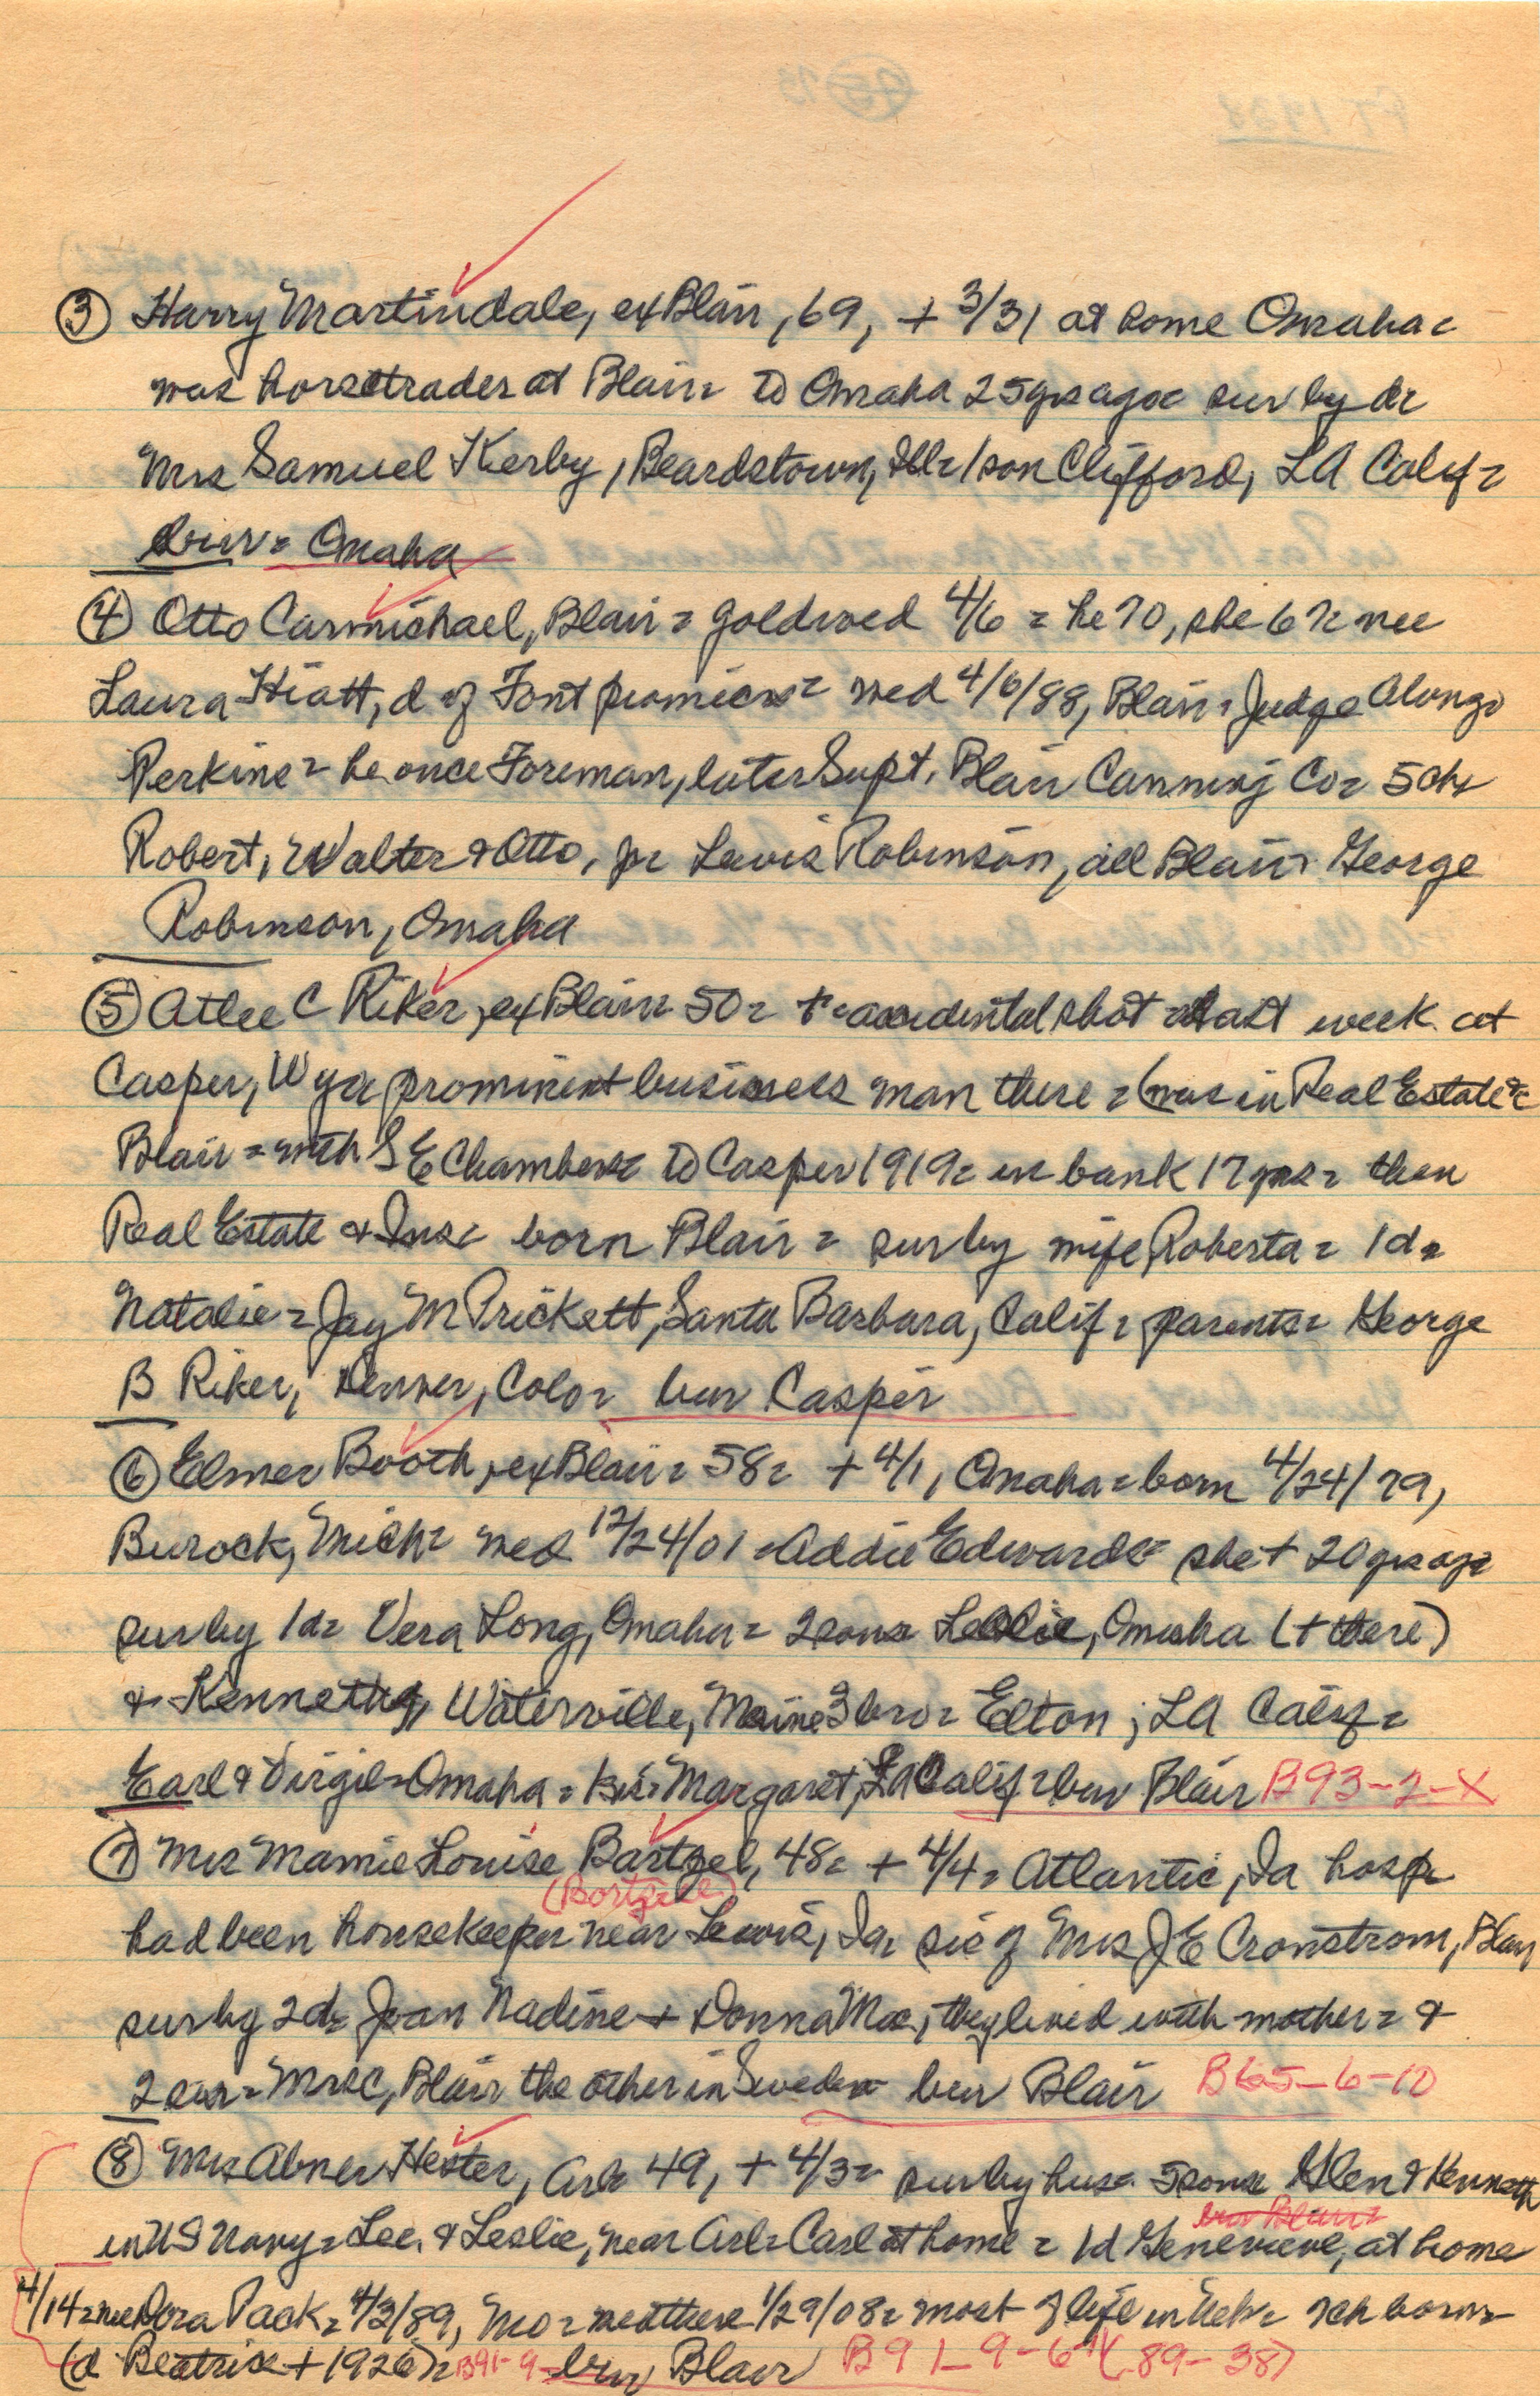 ③ Harry Martindale, ex Blair, 69, + 3/31 at home Omaha =
was horsetrader at Blair = to Omaha 25 yrs ago = sur by d =
Mrs Samuel Kerby, Beardstown, Ill = 1 son Clifford, LA Calif =
bur = Omaha
④ Otto Carmichael, Blair = goldwed 4/6 = he 70, she 67 = nee
Laura Hiatt, d of Font pioneers = wed 4/6/88, Blair = Judge Alonzo
Perkins = he once Foreman, later Supt. Blair Canning Co = 5 ch =
Robert, Walter & Otto, jr Lewis Robinson, all Blair = George
Robinson, Omaha
⑤ Atlee C Riker, ex Blair = 50 = + = accidental shot last week at
Casper, Wy = prominent business man there = (was in Real Estate =
Blair = with S E Chambers = to Casper 1919 = in bank 17 yrs = then
Real Estate & Ins = born Blair = sur by wife Roberta = 1 d =
Natalie = Jay M Prickett, Santa Barbara, Calif = parents = George
B Riker, Denver, Colo = bur Casper
⑥ Elmer Booth, ex Blair = 58 = + 4/1, Omaha = born 4/24/79,
Burock, Mich = wed 12/24/01 = Addie Edwards = she + 20 yrs ago =
sur by 1 d = Vera Long, Omaha = 2 sons Leslie, Omaha (+ there)
& Kenneth, Waterville, Maine 3 bro = Elton, LA Calif =
Earl & Virgil = Omaha = sis = Margaret, LA Calif = bur Blair B93-2-X
⑦ Mrs Mamie Louise Bartzel, 48 = + 4/4 = Atlantic, Ia hosp =
(Bortzell)
had been housekeeper near Lewis, Ia = sis of Mrs J E Cronstrom, Blair
sur by 2 d = Joan Nadine + Donna Mae, they lived with mother = &
2 sis = Mrs C, Blair the other in Sweden = bur Blair B65-6-10
⑧ Mrs Abner Hester, Arl = 49, + 4/3 = sur by hus = 5 sons Glen & Kenneth
bur Blair =
in US Navy = Lee, & Leslie, near Arl = Carl at home = 1 d Genevieve, at home
4/14 = nee Dora Pack = 4/3/89, Mo = wed there 1/29/08 = most of life in Neb = 7 ch born =
(d Beatrice + 1926) = B91-9 bur Blair B91-9-6 (89-38)